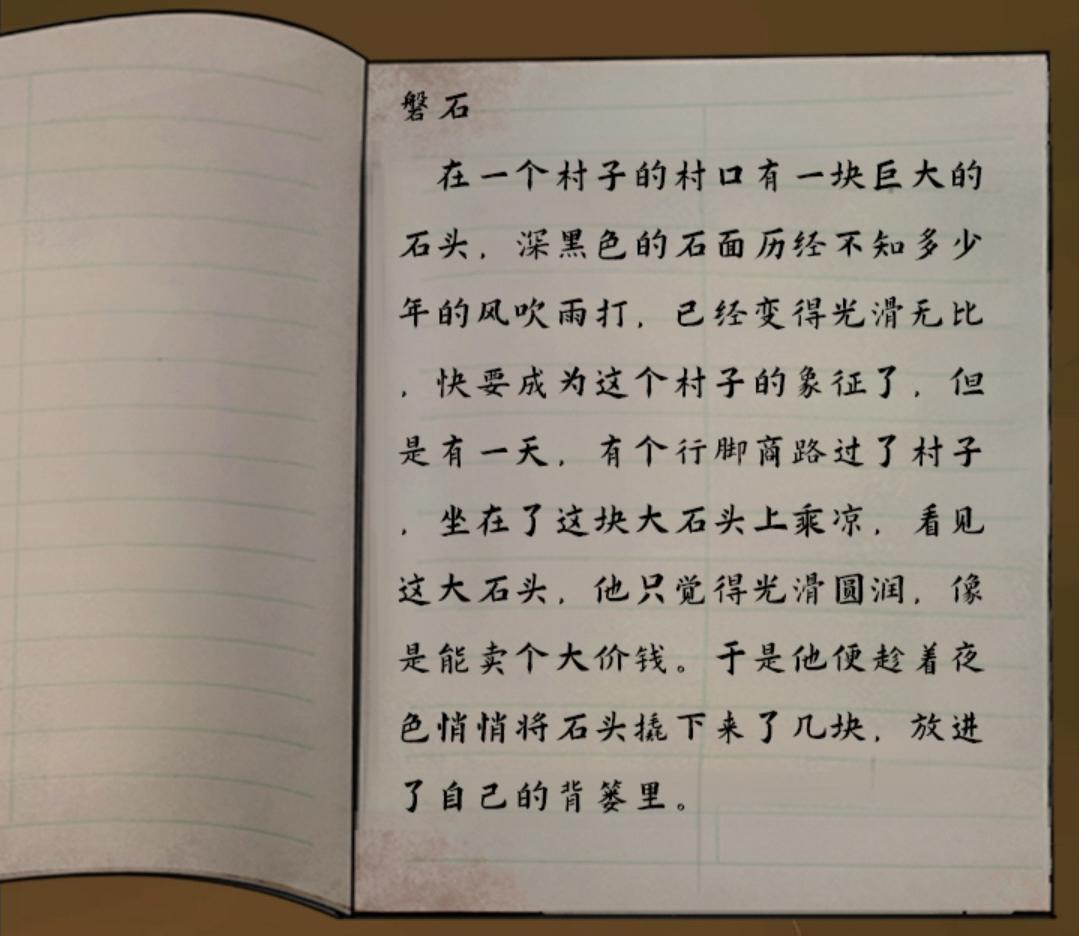 磐石
在一个村子的村口有一块巨大的
石头，深黑色的石面历经不知多少
年的风吹雨打，已经变得光滑无比
，快要成为这个村子的象征了，但
是有一天，有个行脚商路过了村子
，坐在了这块大石头上乘凉，看见
这大石头，他只觉得光滑圆润，像
是能卖个大价钱。于是他便趁着夜
色悄悄将石头撬下来了几块，放进
了自己的背篓里。